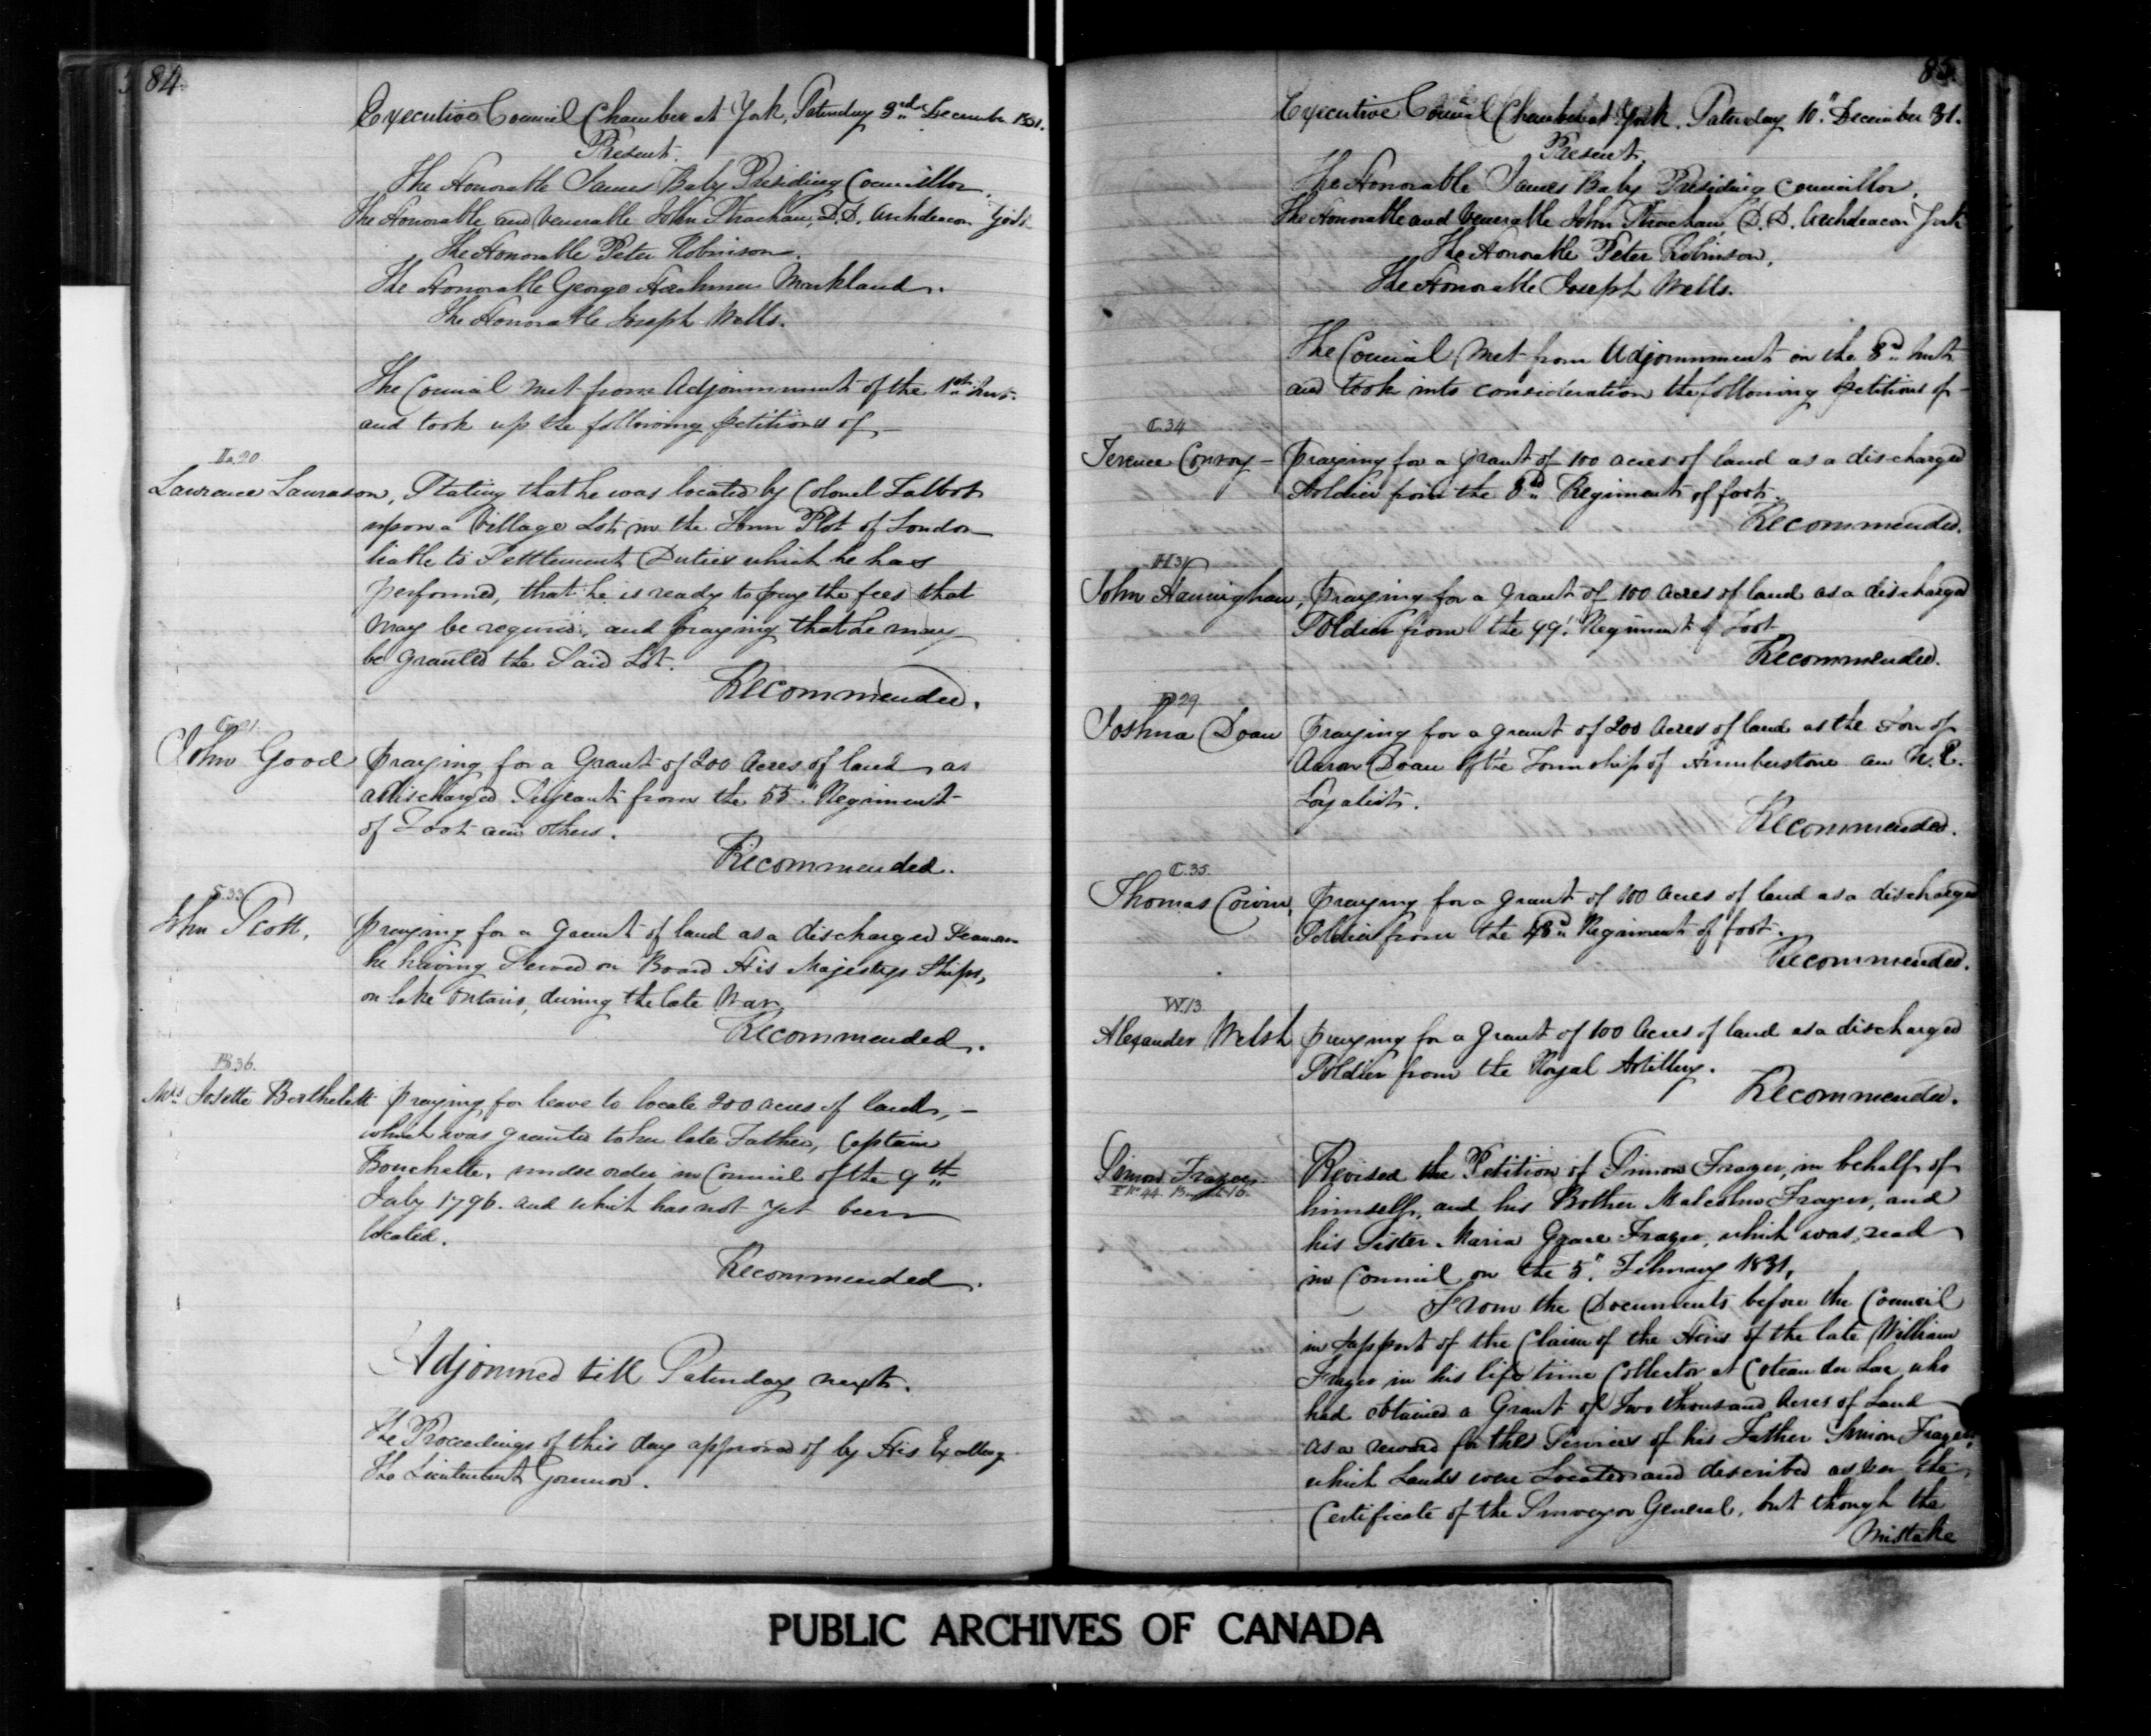 84
Executive Council Chamber at York, Saturday 3rd December 1831.
Present.
The Honorable James Baby Presiding Councillor.
The Honorable and Venerable John Strachan, D.D. Archdeacon York
The Honorable Peter Robinson.
The Honorable George Herchmer Markland.
The Honorable Joseph Wells.
The Council met from Adjournment of the 1st Inst.
and took up the following petitions of,—
L.20.
Lawrence Lawrason, Stating that he was located by Colonel Talbot
upon a Village Lot in the Town Plot of London
liable to Settlement Duties which he has
performed, that he is ready to pay the fees that
may be required, and praying that he may
be granted the Said Lot.
Recommended.
G.21.
John Good praying for a Grant of 200 Acres of land as
a discharged Serjeant from the 55th Regiment
of Foot and others.
Recommended.
S.33.
John Scott, praying for a Grant of land as a discharged Seaman
he having Served on Board His Majestys Ships,
on lake Ontario, during the late War,
Recommended.
B.36.
Mrs Josette Berthelett praying for leave to locate 200 acres of land,—
which was granted to her late Father, Captain
Bouchette, under order in Council of the 9th
July 1796. and which has not yet been
located.
Recommended.
Adjourned till Saturday next.
The Proceedings of this day approved of by His Excellency
The Lieutenant Governor.
85.
Executive Council Chamber at York. Saturday 10th December 31.
Present.
The Honorable James Baby Presiding Councillor.
The Honorable and Venerable John Strachan, D.D. Archdeacon York
The Honorable Peter Robinson,
The Honorable Joseph Wells.
The Council met from Adjournment on the 3rd Inst.
and took into consideration the following petitions of—
C.34
Terence Conroy— Praying for a grant of 100 acres of land as a discharged
Soldier from the Regiment of foot.
Recommended.
H31
John Haningham, praying for a grant of 100 acres of land as a discharged
Soldier from the 99th Regiment of Foot
Recommended.
D29
Joshua Doan Praying for a grant of 200 Acres of land as the Son of
Aaron Doan of the Township of Humberstone an U.E.
Loyalist.
Recommended.
C.35.
Thomas praying for a grant of 100 acres of land as a discharged
Soldier from the Regiment of foot.
Recommended.
W.13.
Alexander Welsh praying for a grant of 100 acres of land as a discharged
Soldier from the Royal Artillery.
Recommended.
Simon Frazer Revised the Petition of Simon Frazer, in behalf of
himself, and his Brother Malcolm Frazer, and
his Sister Maria Grace Frazer, which was read
in Council on the 5th February 1831,
From the Documents before the Council
in Support of the Claim of the Heirs of the late William
Frazer in his life time Collector at Coteau du Lac, who
had obtained a Grant of Two thousand Acres of Land
as a reward for the Services of his Father Simon Frazer,
which Lands were Located and described as per the
Certificate of the Surveyor General, but though the
Mistake
PUBLIC ARCHIVES OF CANADA